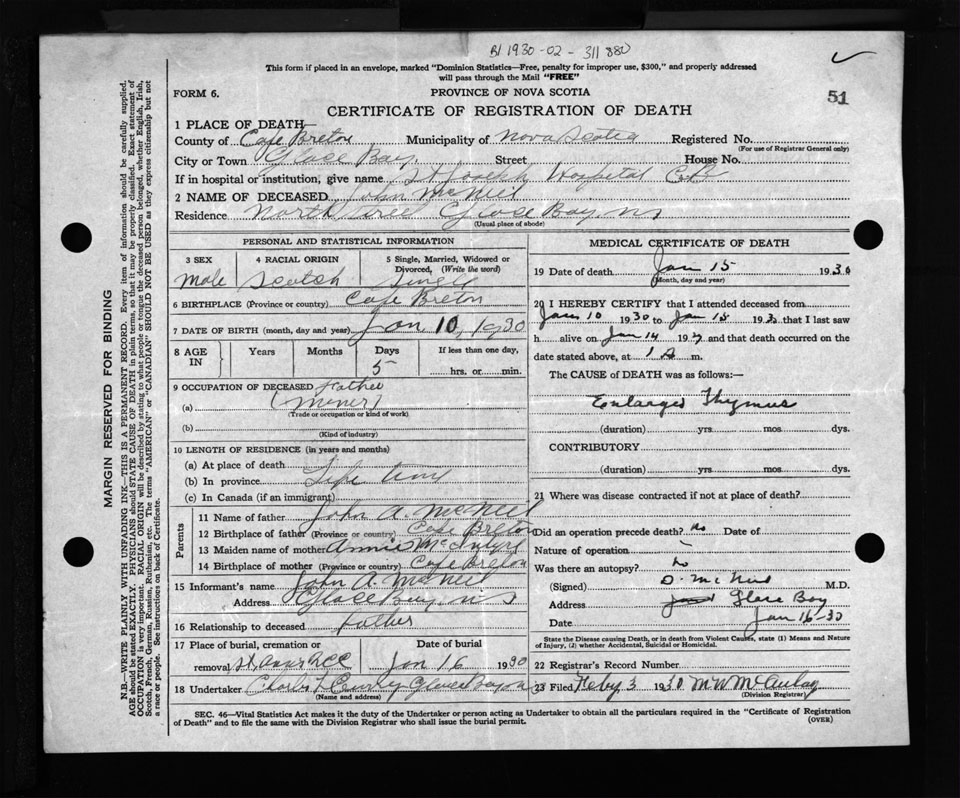 B1 1930-02-311880
This form if placed in an envelope, marked "Dominion Statistics—Free, penalty for improper use, $300," and properly addressed
will pass through the Mail "FREE"
51
FORM 6.
PROVINCE OF NOVA SCOTIA
CERTIFICATE OF REGISTRATION OF DEATH
1 PLACE OF DEATH—
County of Cape Breton Municipality of Nova Scotia Registered No.
(For use of Registrar General only)
City or Town Glace Bay Street House No.
If in hospital or institution, give name St Joseph Hospital C.B
2 NAME OF DECEASED John McNeil
Residence North Street Glace Bay, NS
(Usual place of abode)
PERSONAL AND STATISTICAL INFORMATION
3 SEX 4 RACIAL ORIGIN 5 Single, Married, Widowed or
Divorced, (Write the word)
Male Scotch Single
6 BIRTHPLACE (Province or country) Cape Breton
7 DATE OF BIRTH (month, day and year) Jan 10, 1930
8 AGE IN Years Months Days If less than one day,
5 hrs. or min.
9 OCCUPATION OF DECEASED Father
(a) (Miner)
(Trade or occupation or kind of work)
(b)
(Kind of industry)
10 LENGTH OF RESIDENCE (in years and months)
(a) At place of death
(b) In province Life time
(c) In Canada (if an immigrant)
Parents
11 Name of father John A. McNeil
12 Birthplace of father (Province or country) Cape Breton
13 Maiden name of mother Annie McIntyre
14 Birthplace of mother (Province or country) Cape Breton
15 Informant's name John A. McNeil
Address Glace Bay, NS
16 Relationship to deceased Father
17 Place of burial, cremation or Date of burial
removal St Anns RCC Jan 16 1930
18 Undertaker Charles Glace Bay
(Name and address)
MEDICAL CERTIFICATE OF DEATH
19 Date of death Jan 15 1930
(Month, day and year)
20 I HEREBY CERTIFY that I attended deceased from
Jan 10 1930 to Jan 15 193 that I last saw
h alive on Jan 14 193 and that death occurred on the
date stated above, at 1 A m.
The CAUSE of DEATH was as follows:—
Enlarged Thymus
(duration) yrs. mos. dys.
CONTRIBUTORY
(duration) yrs. mos. dys.
21 Where was disease contracted if not at place of death?
Did an operation precede death? No Date of
Nature of operation
Was there an autopsy? No
(Signed) D. McNeil M.D.
Address Glace Bay
Date Jan 16-30
State the Disease causing Death, or in death from Violent Causes, state (1) Means and Nature
of Injury, (2) whether Accidental, Suicidal or Homicidal.
22 Registrar's Record Number
23 Filed Feby 3 1930 M W McAulay
(Division Registrar)
SEC. 46—Vital Statistics Act makes it the duty of the Undertaker or person acting as Undertaker to obtain all the particulars required in the "Certificate of Registration
of Death" and to file the same with the Division Registrar who shall issue the burial permit.
(OVER)
MARGIN RESERVED FOR BINDING
N.B.—WRITE PLAINLY WITH UNFADING INK—THIS IS A PERMANENT RECORD. Every item of information should be carefully supplied.
AGE should be stated EXACTLY. PHYSICIANS should STATE CAUSE OF DEATH in plain terms, so that it may be properly classified. Exact statement of
OCCUPATION is very important. RACIAL ORIGIN will be described by stating to what people or tongue the deceased person belonged, whether English, Irish,
Scotch, French, German, Russian, Ruthenian, etc. The terms "AMERICAN" or "CANADIAN" SHOULD NOT BE USED as they express citizenship but not
a race or people. See instructions on back of Certificate.